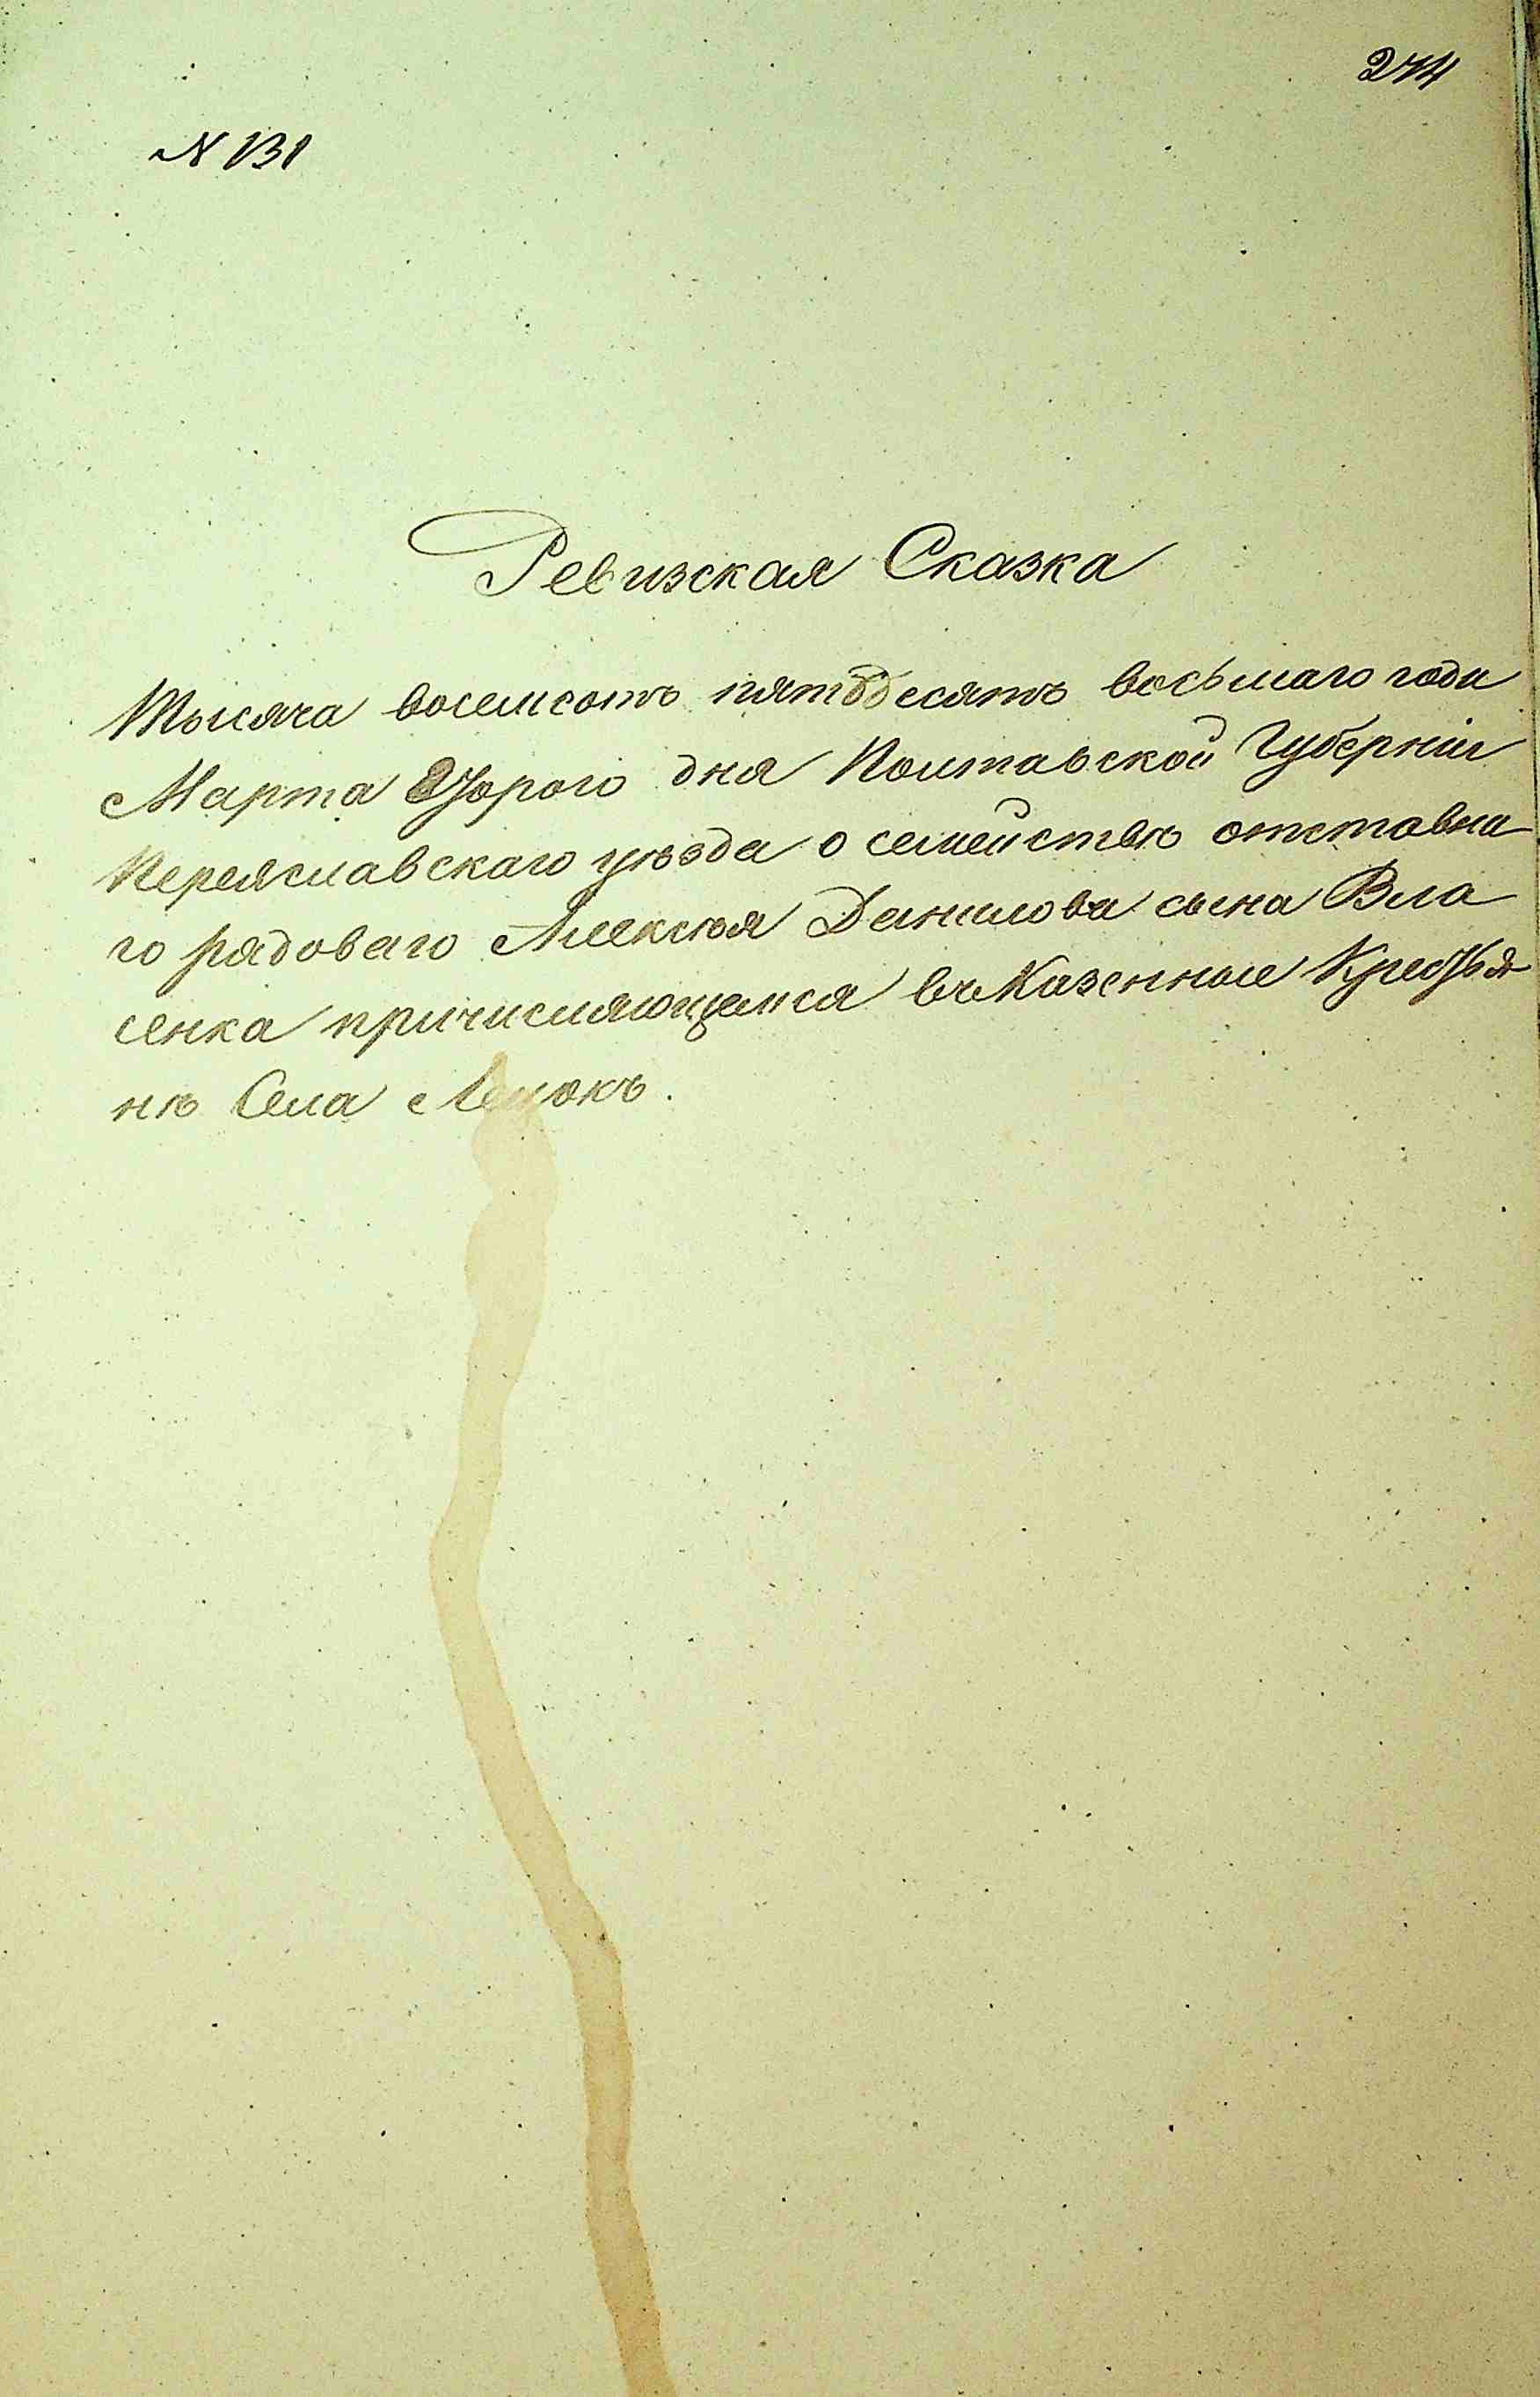 274
№ 131
Ревизская Сказка
Тысяча восемсотъ пятьдесятъ восьмаго года
Марта Второго дня Полтавской Губерніи
Переяславскаго уѣзда о семействѣ отставна
го рядоваго Алексѣя Данилова сына Вла
сенка причисляющемся въ Казенные Крестья
нѣ Села